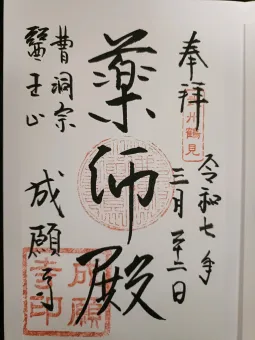 奉拝
令和七年
三月廿二日
薬師殿
曹洞宗
醫王山
成願寺
州鶴見
成願
寺印